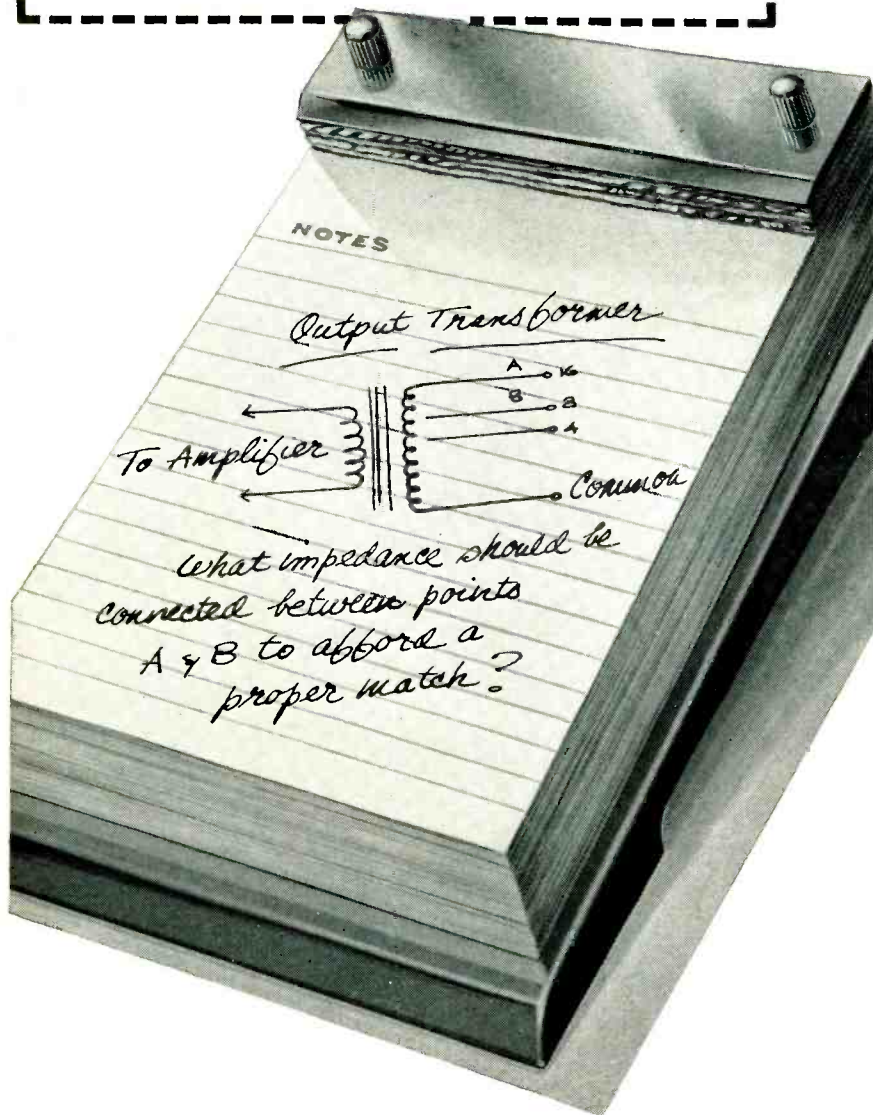 NOTES
Output Transformer
A 16
B 8
4
To Amplifier
Common
What impedance should be
connected between points
A & B to afford a
proper match?